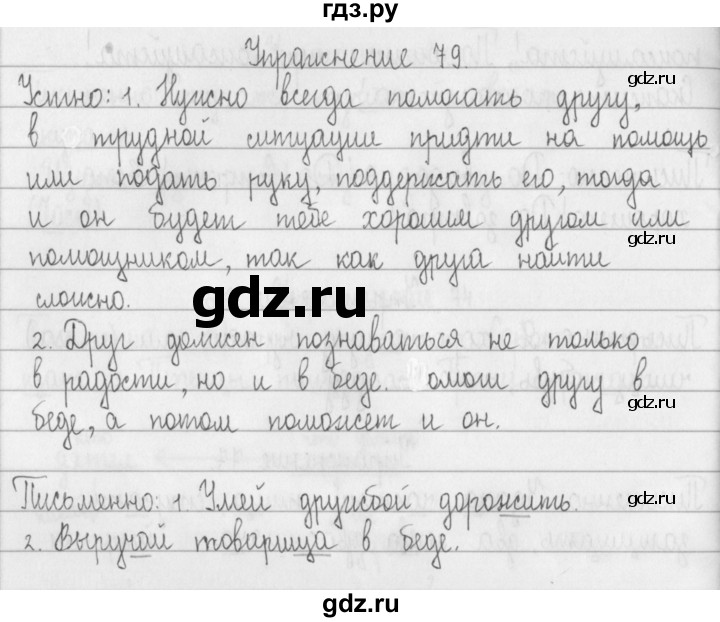 гдз.ру
Упражнение 79.
Устно: 1. Нужно всегда помогать другу,
в трудной ситуации придти на помощь
или подать руку, поддержать его, тогда
и он будет тебе хорошим другом или
помощником, так как друга найти
сложно.
gdz.ru
gdz.ru
gdz.ru
gdz.ru
2. Друг должен познаваться не только
в радости, но и в беде. омоги другу в
беде, а потом поможет и он.
gdz.ru
Письменно: 1. Умей дружбой дорожить.
2. Выручай товарища в беде.
gdz.ru
gdz.ru